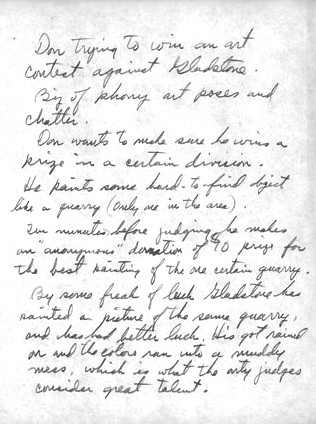 Don trying to win an art
contest against Gladstone.
Biz of phony art poses and
chatter.
Don wants to make sure he wins a
prize in a certain division.
He paints some hard-to-find object
like a quarry (only one in the area).
Ten minutes before judging, he makes
an "anonymous" donation of 70 prize for
the best painting of the one certain quarry.
By some freak of luck Gladstone has
painted a picture of the same quarry,
and has had better luck. His got rained
on and the colors ran into a muddy
mess, which is what the arty judges
consider great talent.